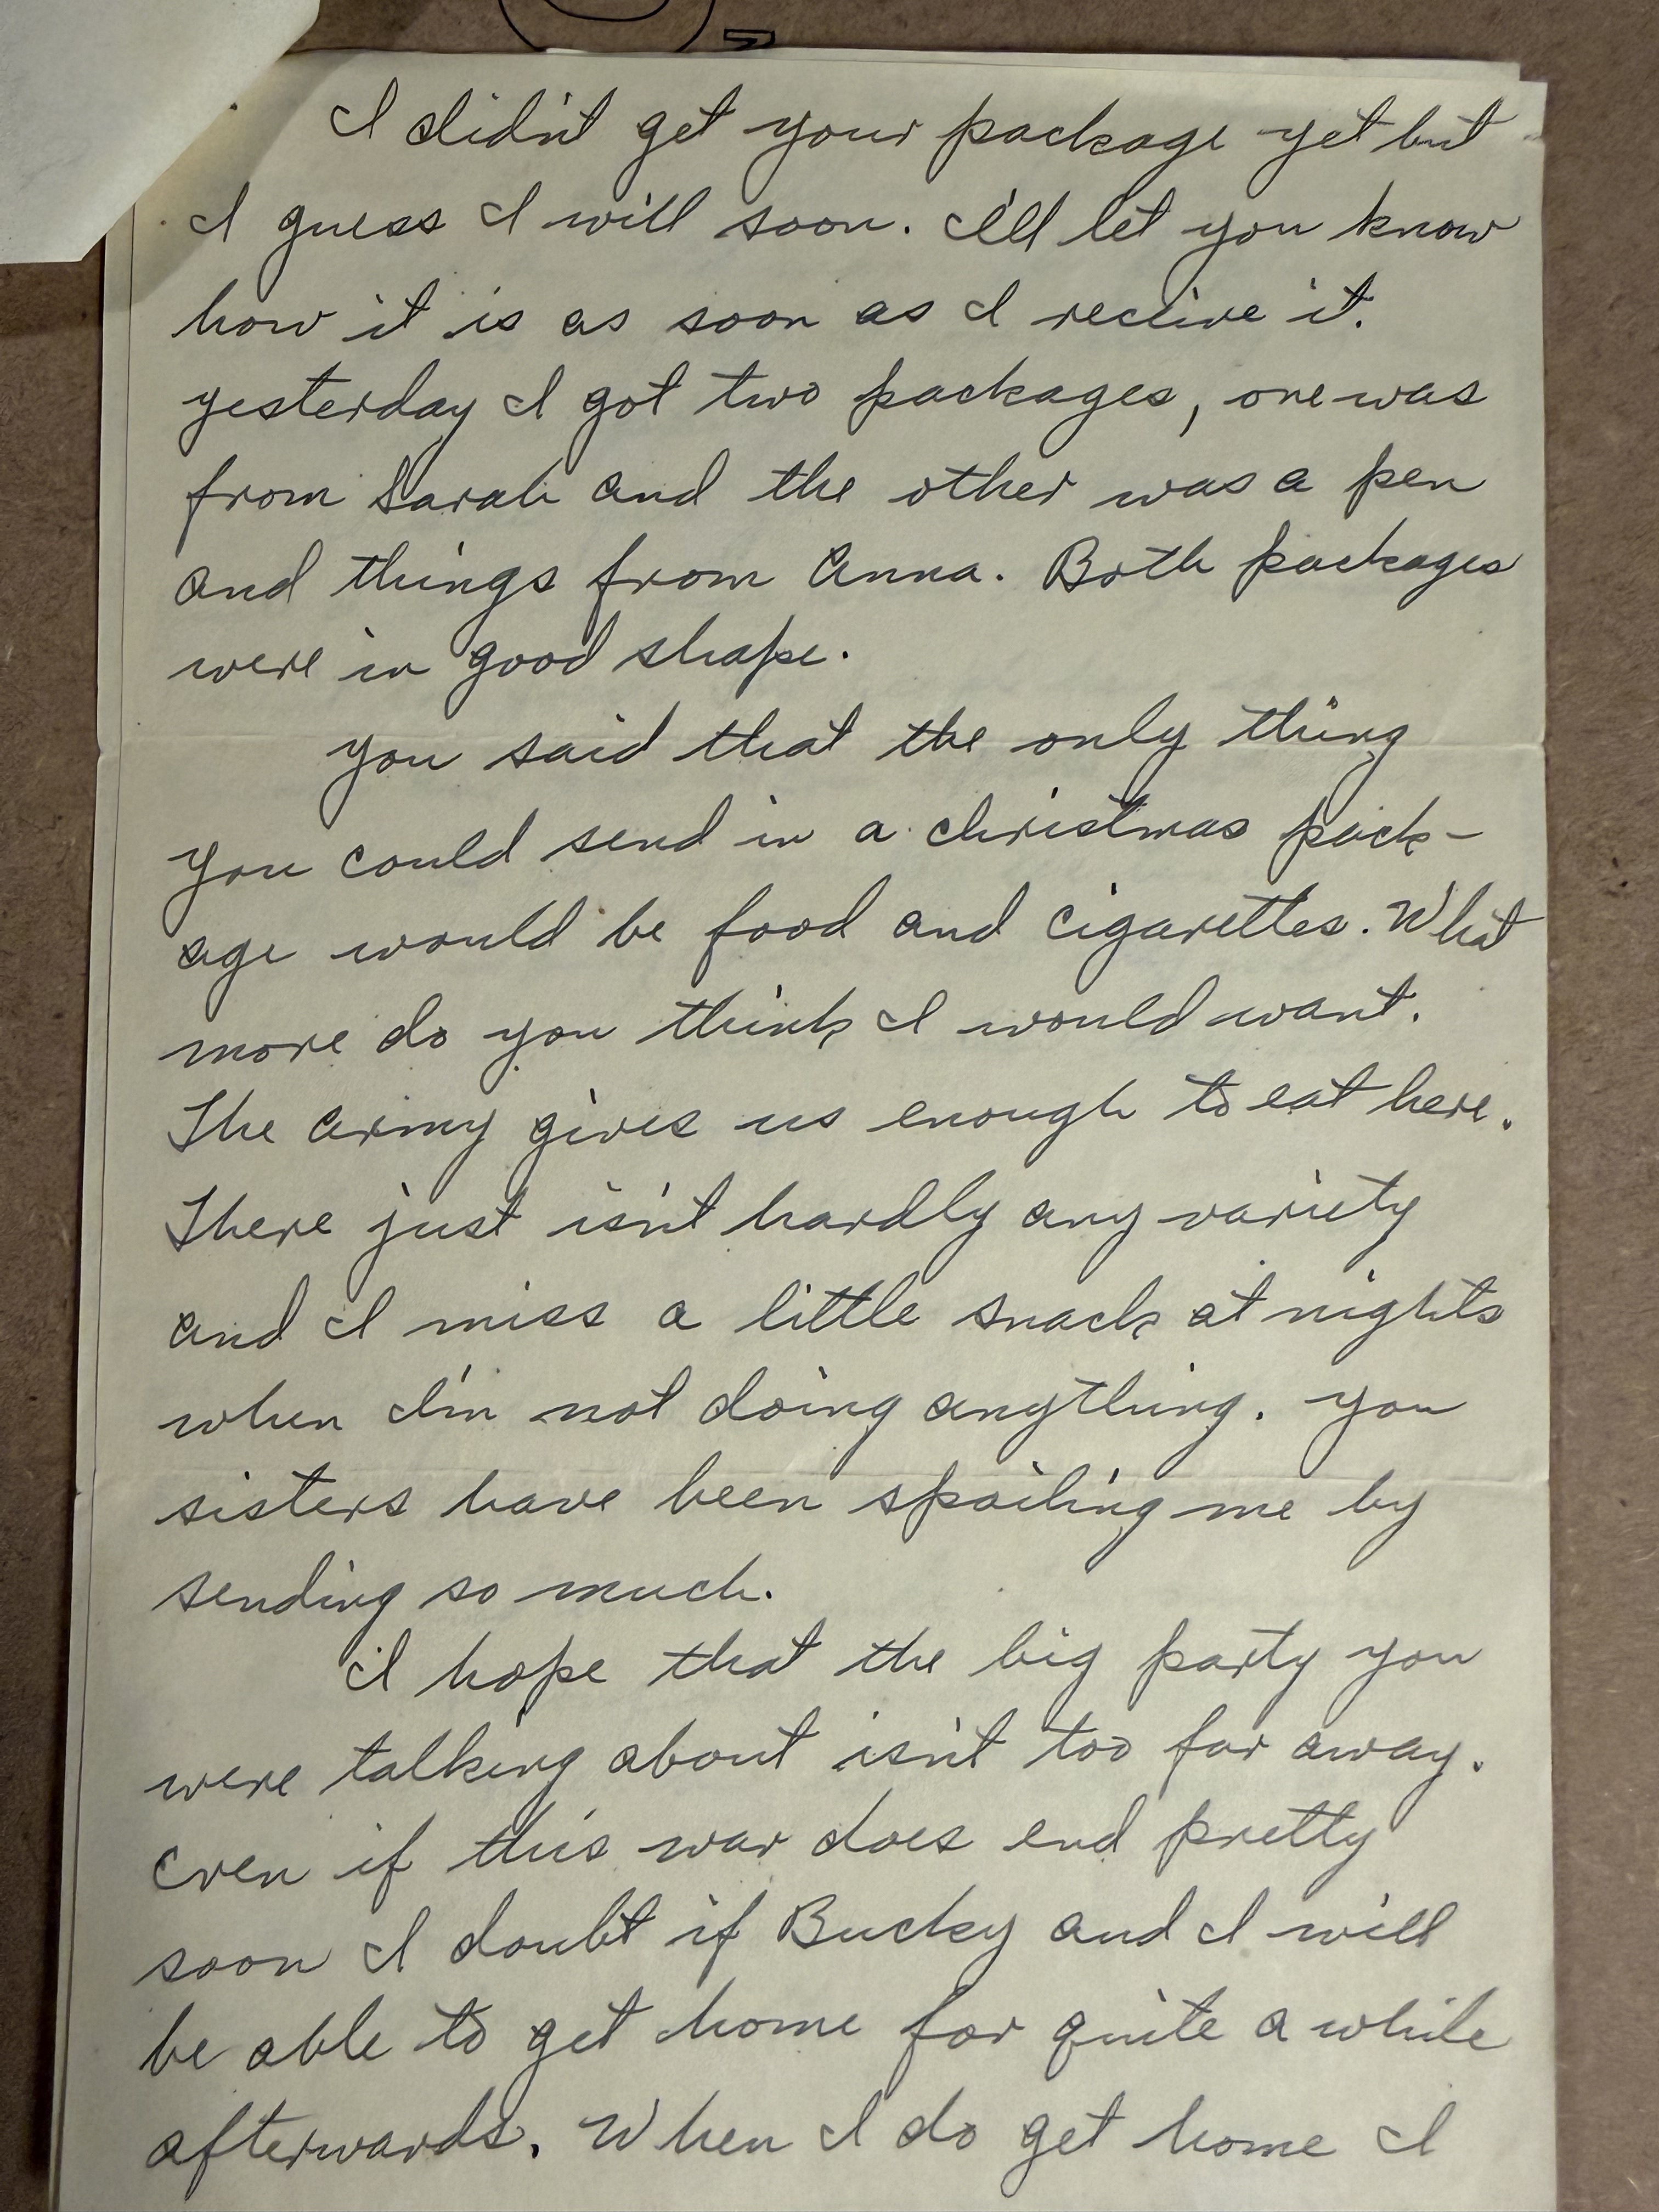 I didn't get your package yet but
I guess I will soon. I'll let you know
how it is as soon as I receive it.
yesterday I got two packages, one was
from Sarah and the other was a pen
and things from Anna. Both packages
were in good shape.
you said that the only thing
you could send in a christmas pack-
age would be food and cigarettes. What
more do you think I would want.
The army gives us enough to eat here.
There just isn't hardly any variety
and I miss a little snack at nights
when I'm not doing anything. you
sisters have been spoiling me by
sending so much.
I hope that the big party you
were talking about isn't too far away.
Even if this war does end pretty
soon I doubt if Bucky and I will
be able to get home for quite a while
afterwards. When I do get home I